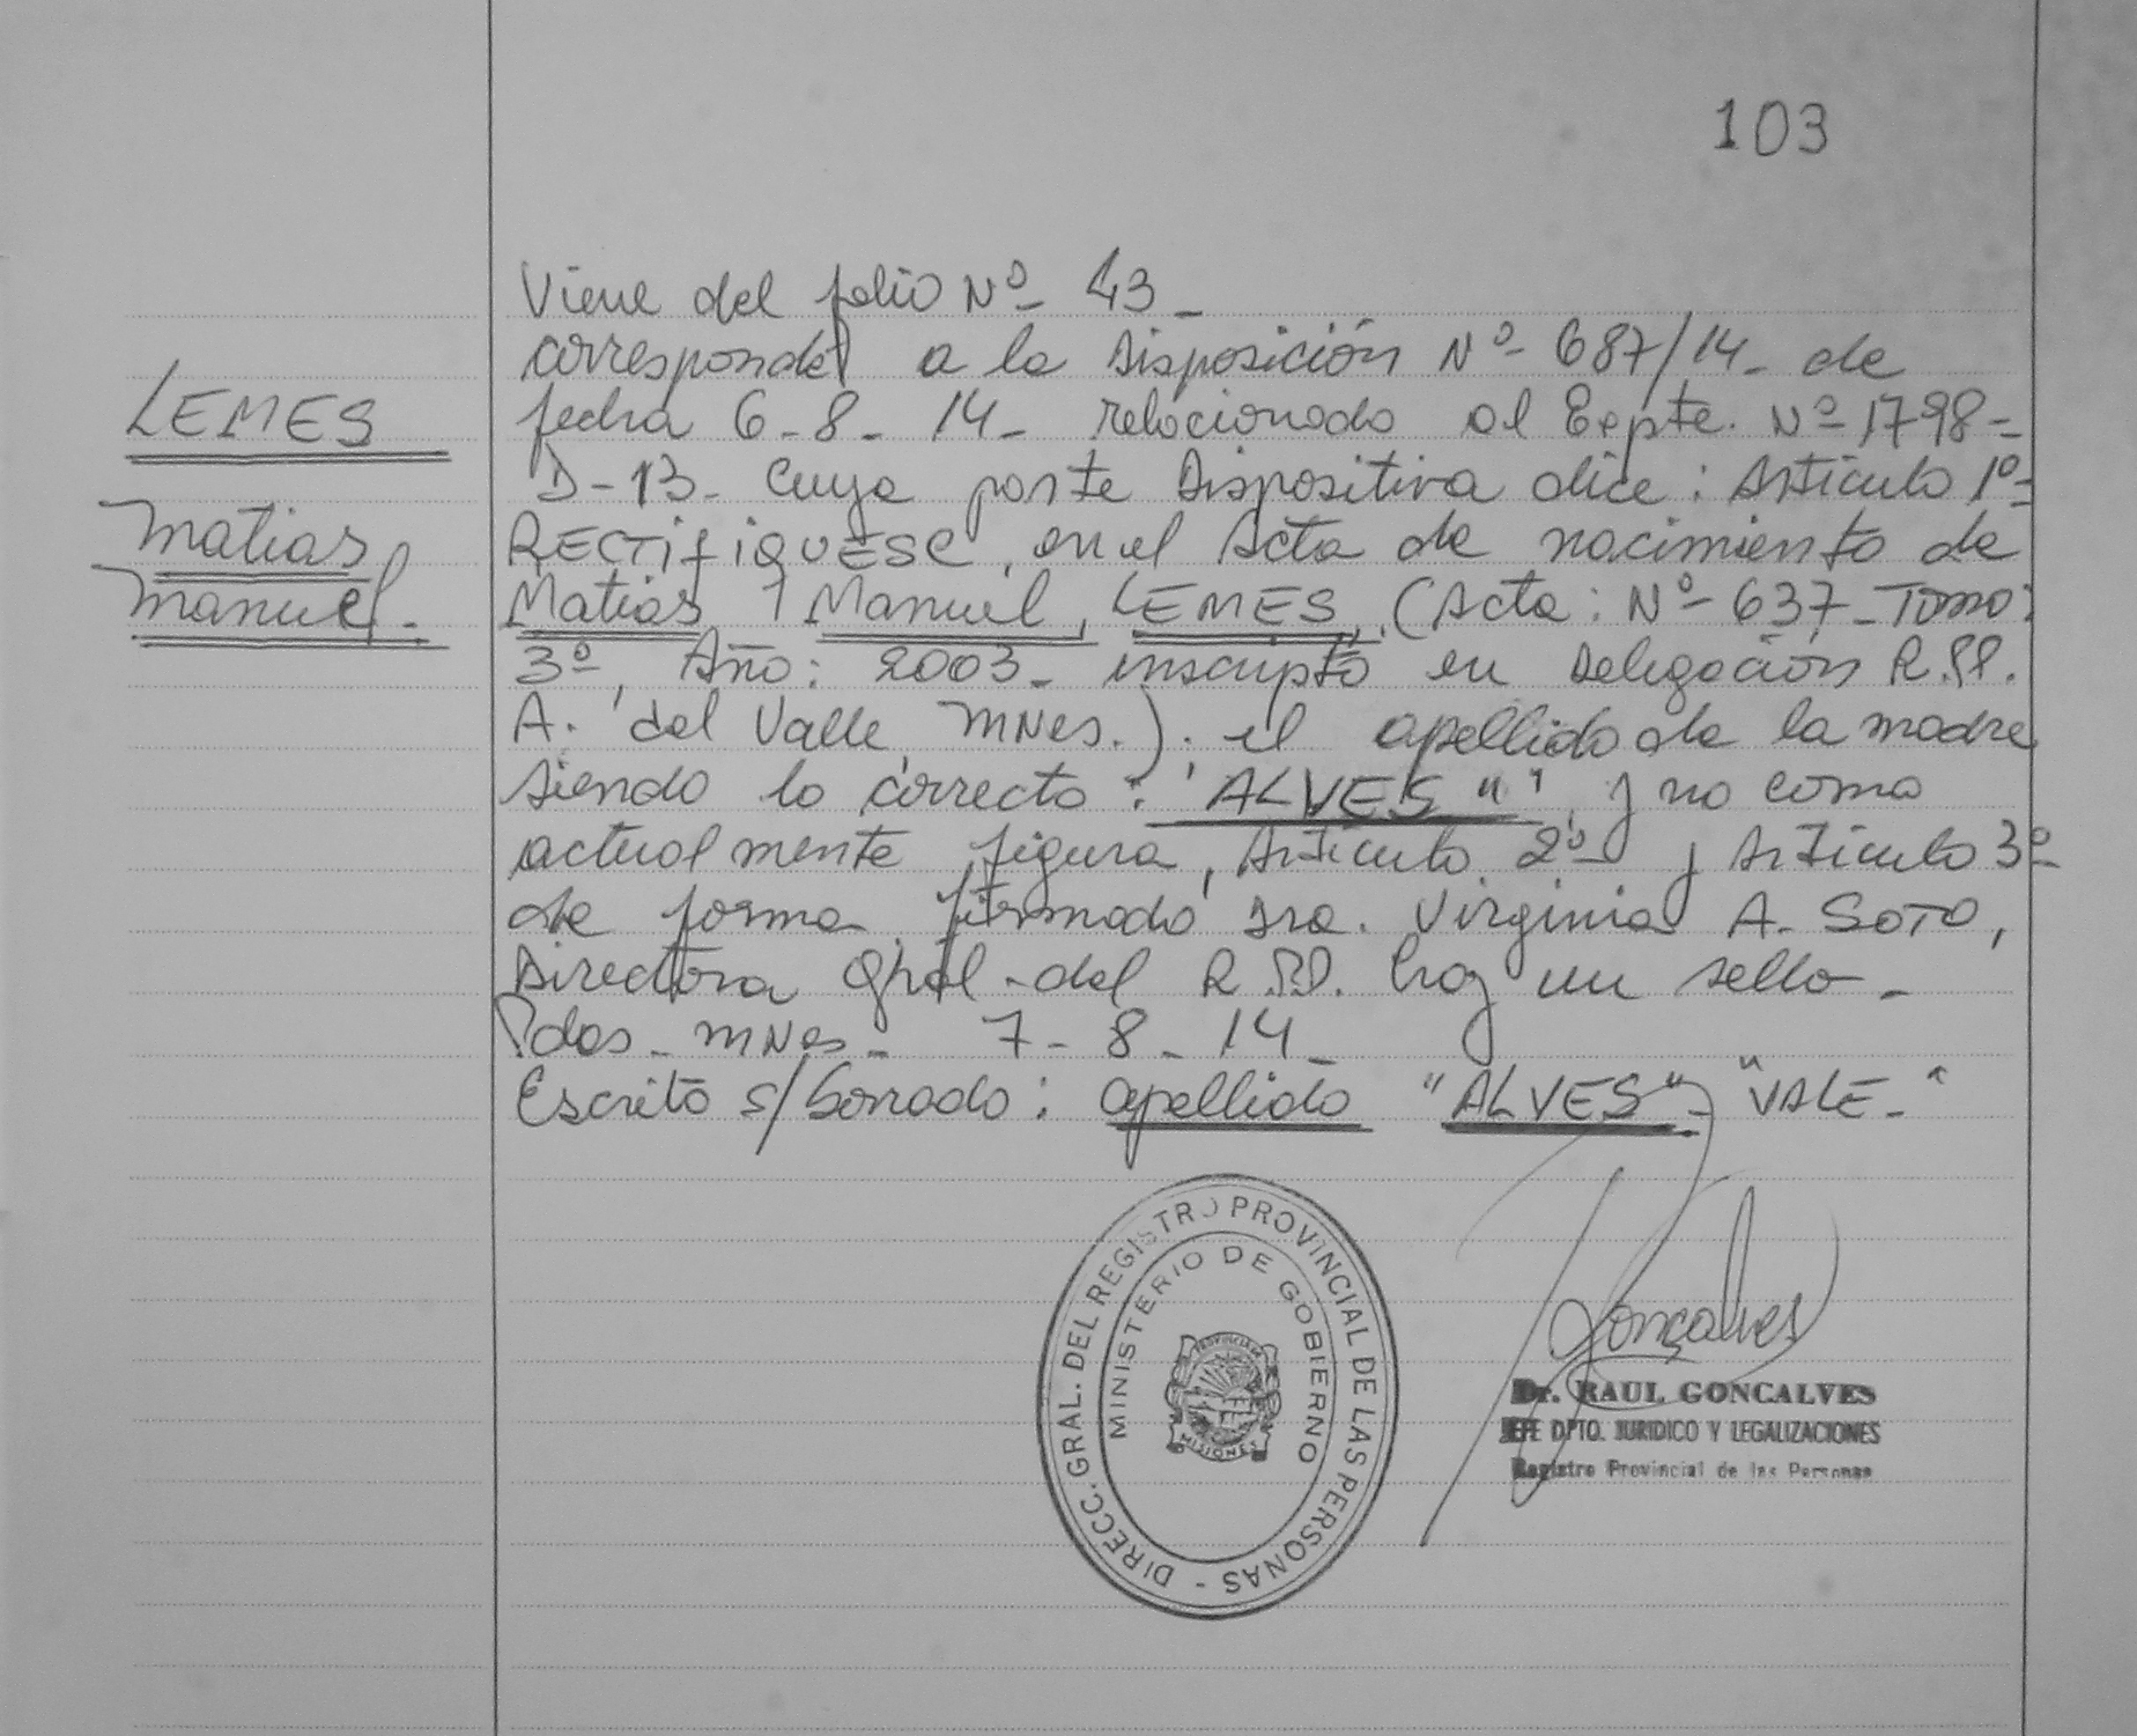 103
Viene del folio Nº- 43-
corresponde a la Disposición Nº- 687/14- de
fecha 6-8-14- relacionado al Expte. Nº-1798-
D-13- Cuya parte Dispositiva dice: Artículo 1º-
RECTIFIQUESE, en el Acta de nacimiento de
Matias Manuel, LEMES, (Acta: Nº- 637-Tomo:
3º, Año: 2003- inscripto en Delegación R.PP.
A. del Valle, MNes.); el apellido de la madre
siendo lo correcto: "ALVES" y no como
actualmente figura, Artículo 2º y Artículo 3º
de forma, firmado Dra. Virginia A. SOTO,
Directora Gral. del R.PP. hay un sello-
Pdas- MNes- 7-8-14-
Escrito s/borrado: apellido "ALVES"- "VALE-"
LEMES
Matias
Manuel.
DIRECC. GRAL. DEL REGISTRO PROVINCIAL DE LAS PERSONAS -
MINISTERIO DE GOBIERNO
PROVINCIA
MISIONES
Gonçalves
Dr. RAUL GONCALVES
JEFE DPTO. JURIDICO Y LEGALIZACIONES
Registro Provincial de las Personas